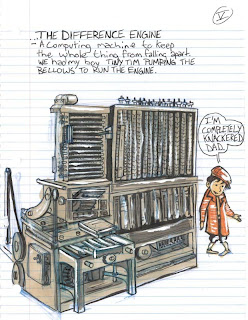 V
...THE DIFFERENCE ENGINE
- A computing machine to keep
the whole thing from falling apart.
we had my boy TINY TIM PUMPING THE
BELLOWS TO RUN THE ENGINE.
I'M
COMPLETELY
KNACKERED
DAD.